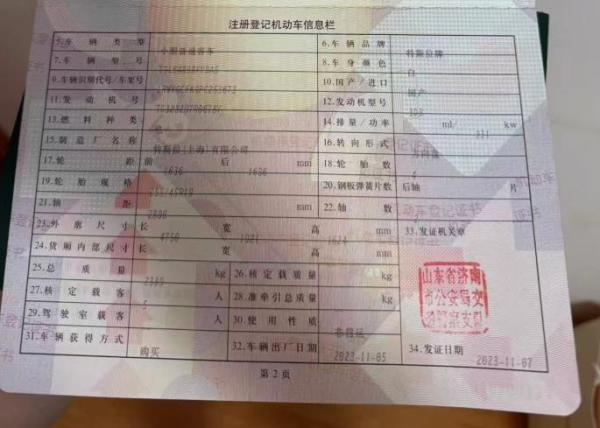 注册登记机动车信息栏
5.车辆类型 小型普通客车 6.车辆品牌 特斯拉牌
7.车辆型号 8.车身颜色 白
9.车辆识别代号/车架号 10.国产/进口 国产
11.发动机号 12.发动机型号
13.燃料种类 电 14.排量/功率 ml/ kw
15.制造厂名称 特斯拉(上海)有限公司 16.转向形式 方向盘
17.轮距 前 1636 后 1636 mm 18.轮胎数 4
19.轮胎规格 255/45R19 20.钢板弹簧片数 后轴 片
21.轴距 mm 22.轴数
23.外廓尺寸 长 4750 宽 1921 高 1624 mm 33.发证机关章
24.货厢内部尺寸 长 宽 高 mm
25.总质量 kg 26.核定载质量 kg
27.核定载客 5 人 28.准牵引总质量 kg
29.驾驶室载客 人 30.使用性质 非营运
31.车辆获得方式 购买 32.车辆出厂日期 2023-11-05 34.发证日期 2023-11-07
山东省济南
市公安局交
通警察支队
第2页